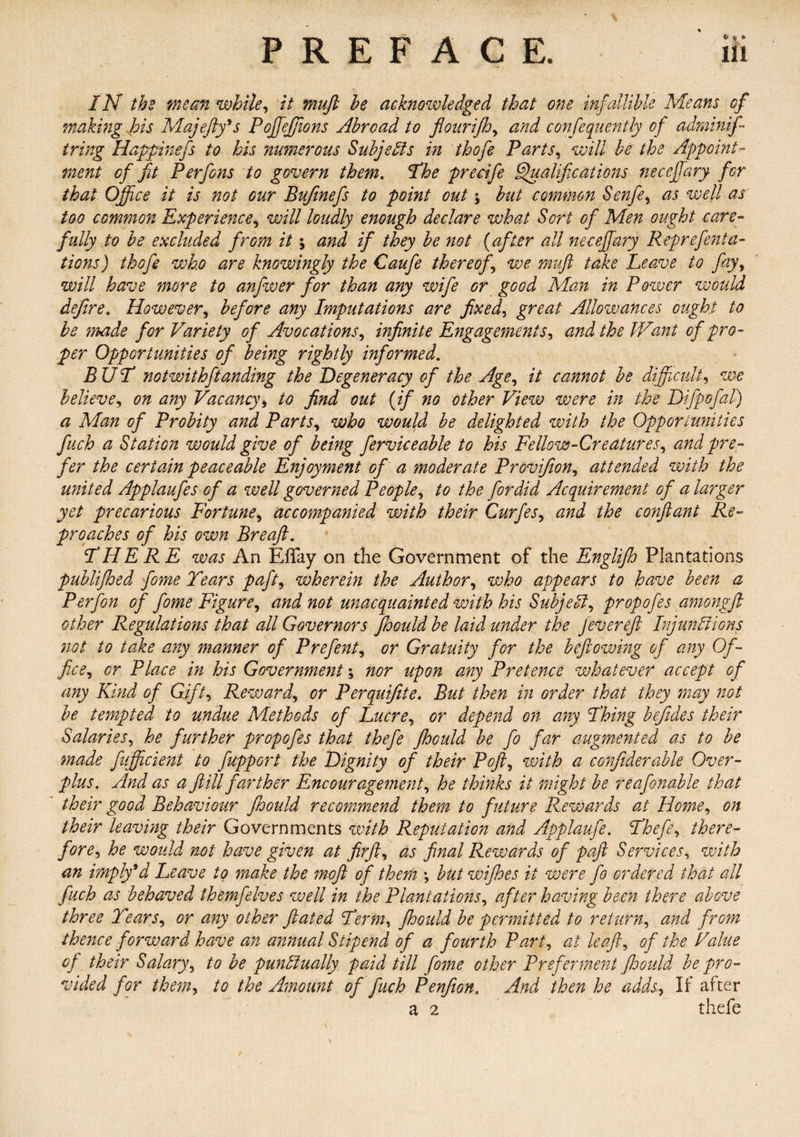 PREFACE. iii
IN the mean while, it muſt be acknowledged that one infallible Means of
making his Majeſty's Poſſeſſions Abroad to flouriſh, and conſequently of adminiſ-
tring Happineſs to his numerous Subjects in thoſe Parts, will be the Appoint-
ment of fit Perſons to govern them. The preciſe Qualifications neceſſary for
that Office it is not our Buſineſs to point out; but common Senſe, as well as
too common Experience, will loudly enough declare what Sort of Men ought care-
fully to be excluded from it; and if they be not (after all neceſſary Repreſenta-
tions) thoſe who are knowingly the Cauſe thereof, we muſt take Leave to ſay,
will have more to anſwer for than any wiſe or good Man in Power would
deſire. However, before any Imputations are fixed, great Allowances ought to
be made for Variety of Avocations, infinite Engagements, and the Want of pro-
per Opportunities of being rightly informed.
BUT notwithſtanding the Degeneracy of the Age, it cannot be difficult, we
believe, on any Vacancy, to find out (if no other View were in the Diſpoſal)
a Man of Probity and Parts, who would be delighted with the Opportunities
ſuch a Station would give of being ſerviceable to his Fellow-Creatures, and pre-
fer the certain peaceable Enjoyment of a moderate Proviſion, attended with the
united Applauſes of a well governed People, to the ſordid Acquirement of a larger
yet precarious Fortune, accompanied with their Curſes, and the conſtant Re-
proaches of his own Breaſt.
THERE was An Eſſay on the Government of the Engliſh Plantations
publiſhed ſome Years paſt, wherein the Author, who appears to have been a
Perſon of ſome Figure, and not unacquainted with his Subject, propoſes amongſt
other Regulations that all Governors ſhould be laid under the ſevereſt Injunctions
not to take any manner of Preſent, or Gratuity for the beſtowing of any Of-
fice, or Place in his Government; nor upon any Pretence whatever accept of
any Kind of Gift, Reward, or Perquiſite. But then in order that they may not
be tempted to undue Methods of Lucre, or depend on any Thing beſides their
Salaries, he further propoſes that theſe ſhould be ſo far augmented as to be
made ſufficient to ſupport the Dignity of their Poſt, with a conſiderable Over-
plus. And as a ſtill farther Encouragement, he thinks it might be reaſonable that
their good Behaviour ſhould recommend them to future Rewards at Home, on
their leaving their Governments with Reputation and Applauſe. Theſe, there-
fore, he would not have given at firſt, as final Rewards of paſt Services, with
an imply'd Leave to make the moſt of them; but wiſhes it were ſo ordered that all
ſuch as behaved themſelves well in the Plantations, after having been there above
three Years, or any other ſtated Term, ſhould be permitted to return, and from
thence forward have an annual Stipend of a fourth Part, at leaſt, of the Value
of their Salary, to be punctually paid till ſome other Preferment ſhould be pro-
vided for them, to the Amount of ſuch Penſion. And then he adds, If after
a 2 theſe